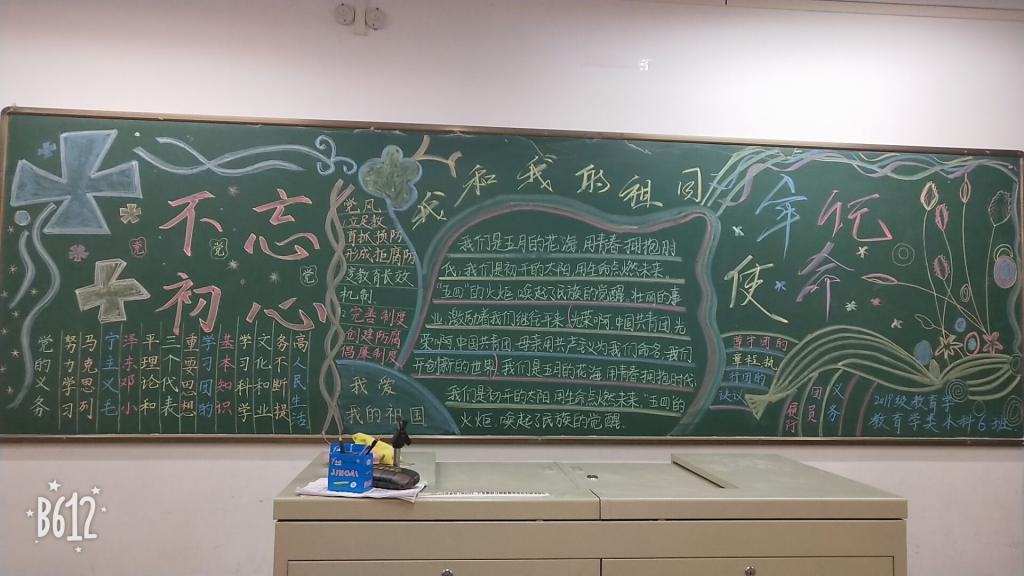 不忘
初心
党
党
党
党的义务
努力学习
马克思列
宁主义毛
泽东邓小
平理论和
三个代表
重要思想
学习团的
基本知识
学习科学
文化和业
务不断提
高人民生活
党风
立是教
育抓预防
形成拒腐防
变教育长效
机制
完善制度
创建防腐
倡廉制度
我爱
我的祖国
我和我的祖国
我们是五月的花海 用青春拥抱时
代,我们是初升的太阳 用生命点燃未来.
"五四"的火炬.唤起了民族的觉醒.壮丽的事
业,激励着我们继往开来.光荣啊,中国共青团 光
荣啊 中国共青团.母亲用共产主义为我们命名.我们
开创新的世界.我们是五月的花海 用青春拥抱时代.
我们是初升的太阳 用生命点燃未来."五四"的
火炬.唤起了民族的觉醒.
牢记
使命
遵守团的
章程,执
行团的
决议
履行
团员
义务
2019级教育学
教育学类本科6班
B612